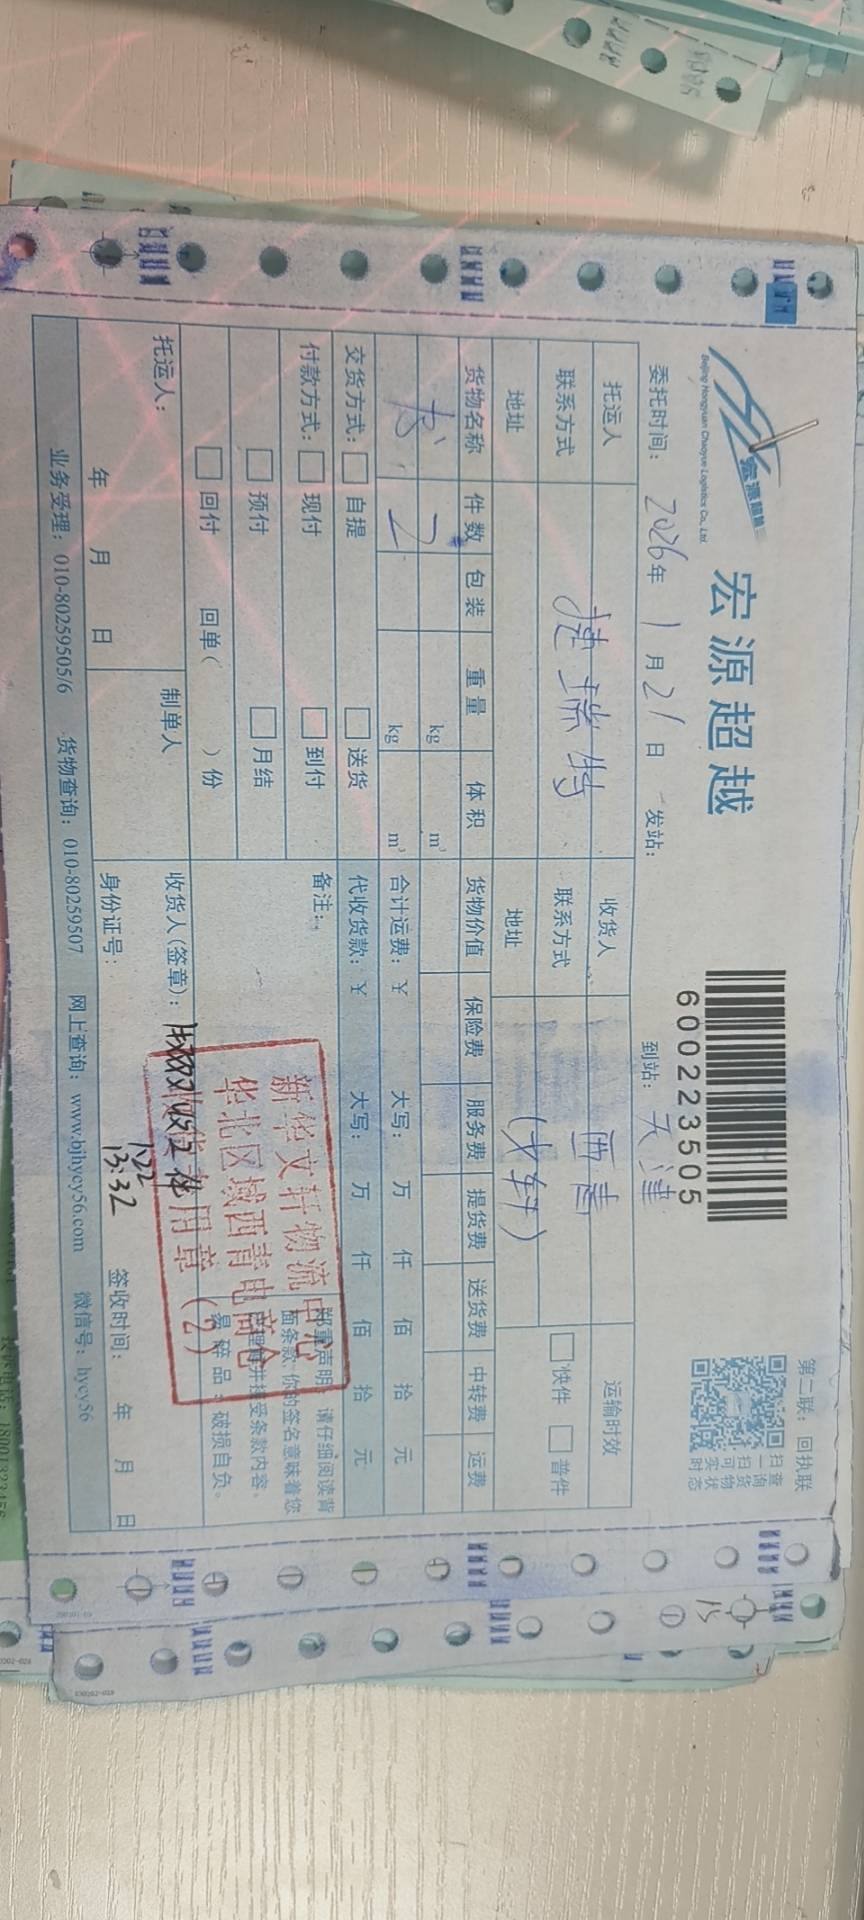 宏源超越
Beijing Hongyuan Chaoyue Logistics Co., Ltd.
宏源超越
600223505
第二联：回执联
扫一扫可实时
查询货物状态
委托时间： 2026年 1月21日 发站： 到站：天津
托运人 捷瑞特 收货人 西青 运输时效
联系方式 联系方式 快件 普件
地址 地址 (文轩)
货物名称 件数 包装 重量 体积 货物价值 保险费 服务费 提货费 送货费 中转费 运费
kg m³
书 2 kg m³ 合计运费：¥ 大写： 万 仟 佰 拾 元
交货方式： 自提 送货 代收货款：¥ 大写： 万 仟 佰 拾 元
付款方式： 现付 到付 备注：
预付 月结
回付 回单( )份
郑重声明：请仔细阅读背
面条款，你的签名意味着您
已理解并接受条款内容。
易碎品：破损自负。
新华文轩物流中心
华北区域西青电商仓
收货专用章(2)
托运人： 制单人 收货人(签章)： 实收2件
1.22
13:32
年 月 日 身份证号： 签收时间： 年 月 日
业务受理：010-80259505/6 货物查询：010-80259507 网上查询：www.bjhycy56.com 微信号：hycy56